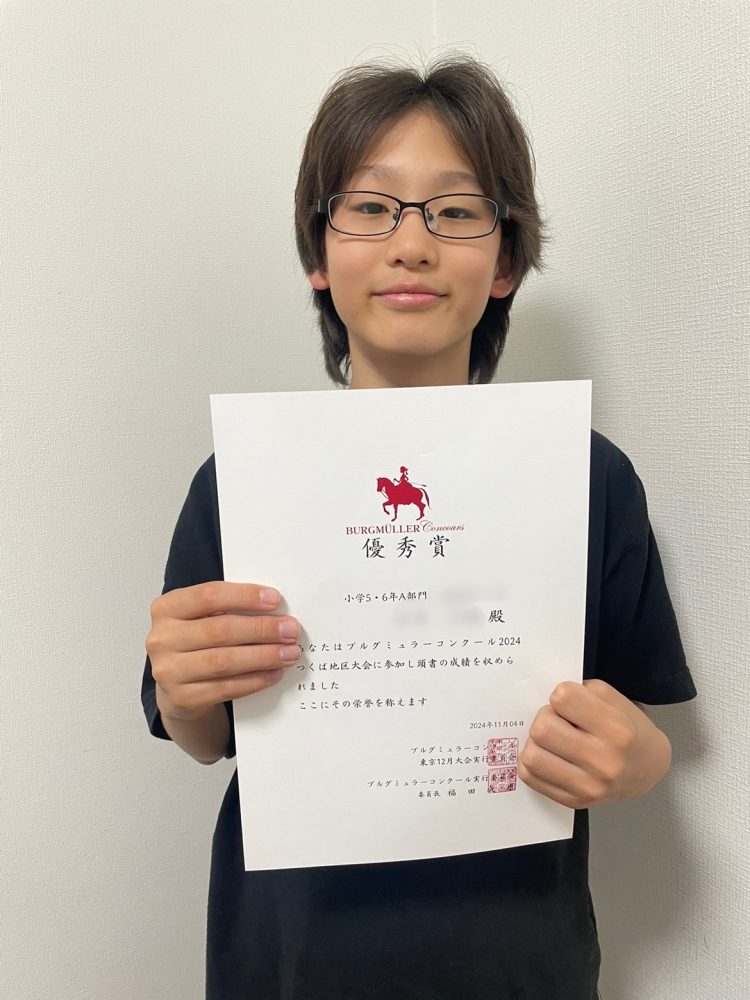 BURGMÜLLER Concours
優秀賞
小学5・6年A部門
殿
あなたはブルグミュラーコンクール2024
つくば地区大会に参加し頭書の成績を収めら
れました
ここにその栄誉を称えます
2024年11月04日
ブルグミュラーコンクール
東京12月大会実行
ブルグミュラーコンクール実行
委員長 福田